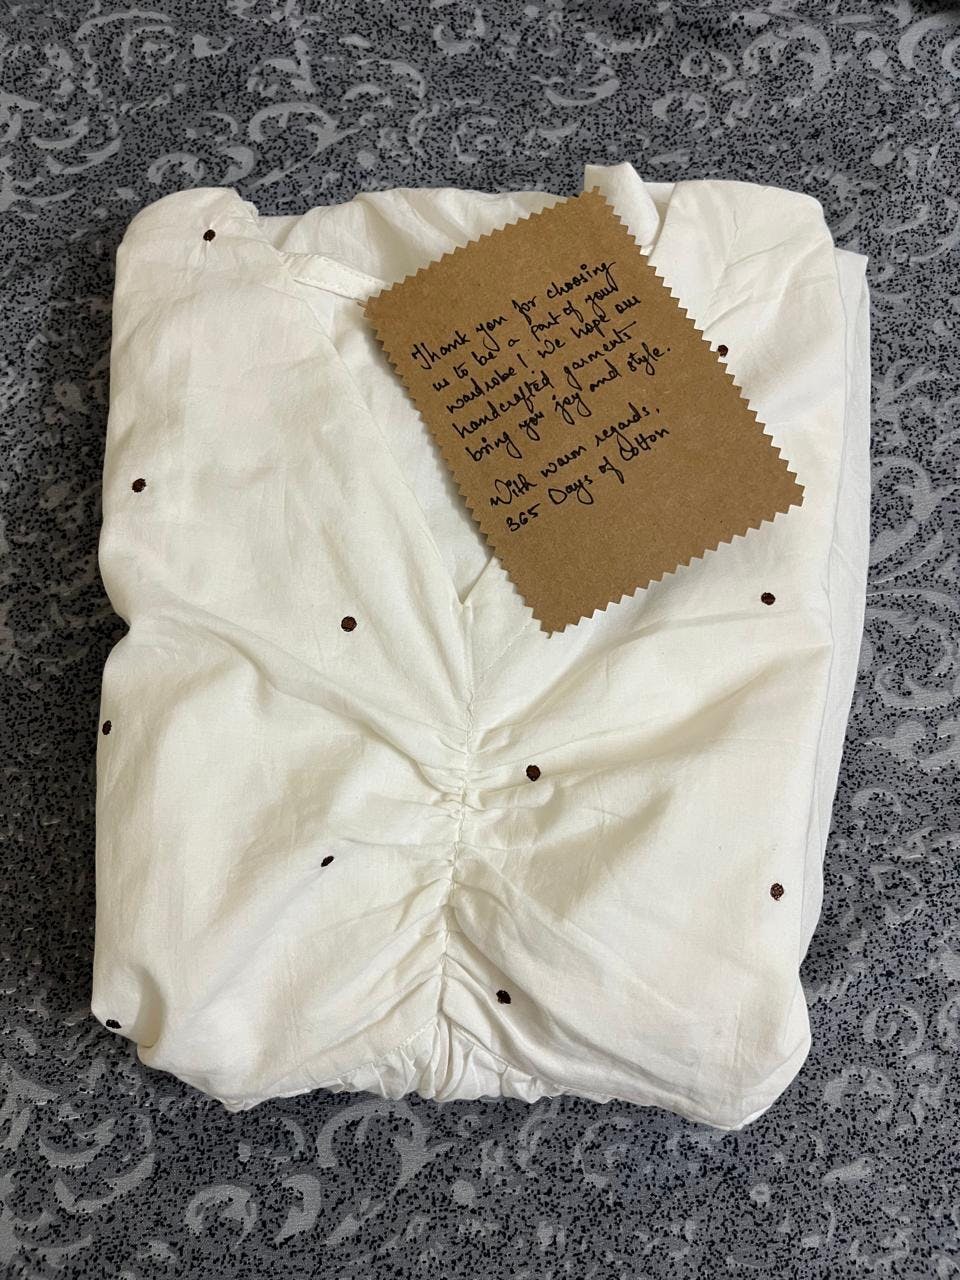 Thank you for choosing
us to be a part of your
wardrobe! We hope our
handcrafted garments
bring you joy and style.
With warm regards,
365 Days of Cotton